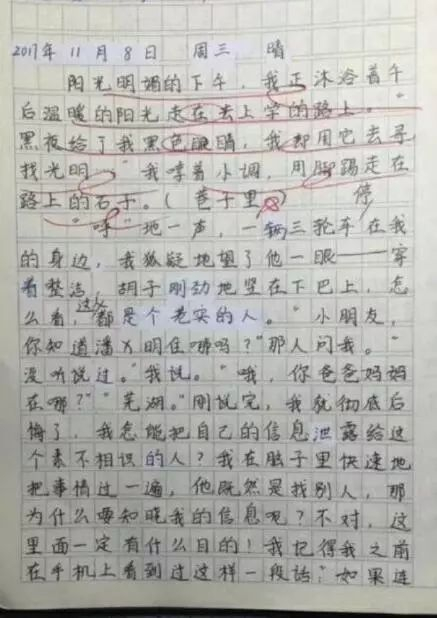 2017年 11月 8日 周三 晴
阳光明媚的下午，我正沐浴着午
后温暖的阳光走在去上学的路上。“
黑夜给了我黑色眼睛，我却用它去寻
找光明”我哼着小调，用脚踢走在
路上的石子。（巷子里）停
“呼”地一声，一辆三轮车在我
的身边，我狐疑地望了他一眼——穿
着整洁，胡子刚劲地竖在下巴上，怎
么看，这父都是个老实的人。“小朋友，
你知道潘X明住哪吗？”那人问我。“
没听说过。”我说。“哦，你爸爸妈妈
在哪？”“芜湖。”刚说完，我就彻底后
悔了，我怎能把自己的信息泄露给这
个素不相识的人？我在脑子里快速地
把事情过一遍，他既然是找别人，那
为什么要知晓我的信息呢？不对，这
里面一定有什么目的！我记得我之前
在手机上看到过这样一段话：“如果连